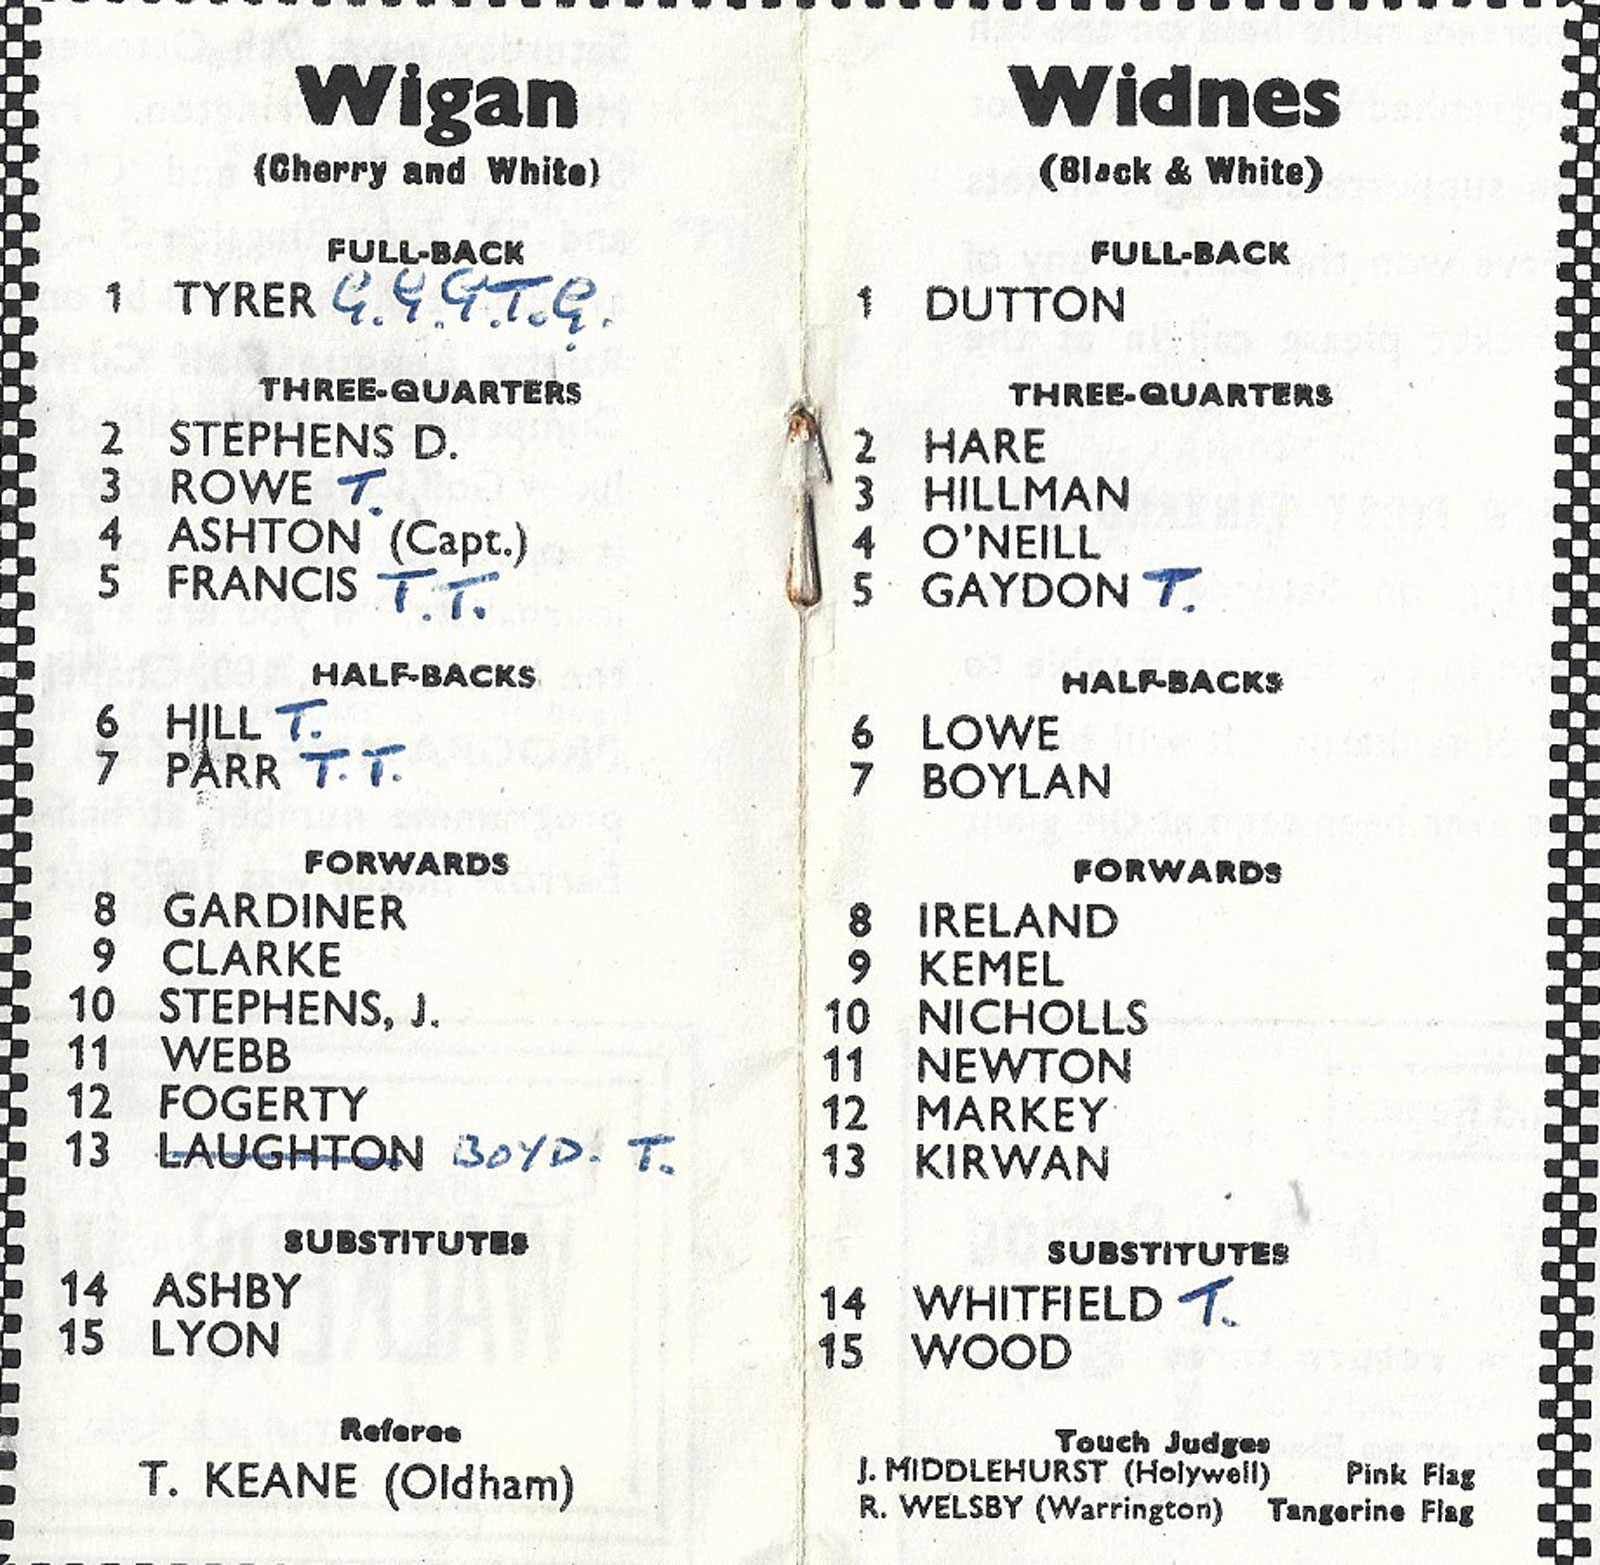 Wigan
(Cherry and White)
FULL-BACK
1 TYRER G.G.G.T.G.
THREE-QUARTERS
2 STEPHENS D.
3 ROWE T.
4 ASHTON (Capt.)
5 FRANCIS T.T.
HALF-BACKS
6 HILL T.
7 PARR T.T.
FORWARDS
8 GARDINER
9 CLARKE
10 STEPHENS, J.
11 WEBB
12 FOGERTY
13 LAUGHTON BOYD. T.
SUBSTITUTES
14 ASHBY
15 LYON
Referee
T. KEANE (Oldham)
Widnes
(Black & White)
FULL-BACK
1 DUTTON
THREE-QUARTERS
2 HARE
3 HILLMAN
4 O'NEILL
5 GAYDON T.
HALF-BACKS
6 LOWE
7 BOYLAN
FORWARDS
8 IRELAND
9 KEMEL
10 NICHOLLS
11 NEWTON
12 MARKEY
13 KIRWAN
SUBSTITUTES
14 WHITFIELD T.
15 WOOD
Touch Judges
J. MIDDLEHURST (Holywell) Pink Flag
R. WELSBY (Warrington) Tangerine Flag